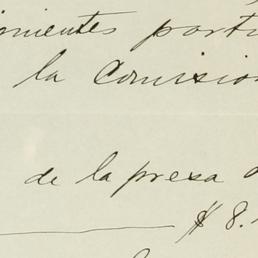 nientes parti
la Comision
de la presa d
$ 8.